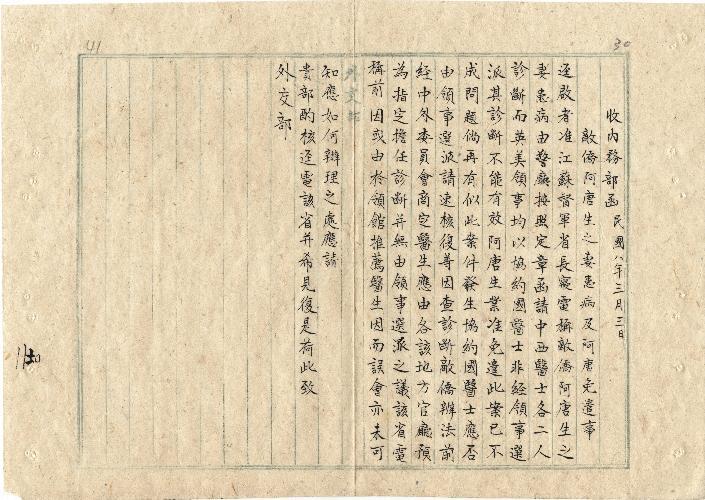 30
收內務部函 民國八年三月三日
敵僑阿唐生之妻患病及阿唐免遣事
逕啟者准江蘇督軍省長寢電稱敵僑阿唐生之
妻患病由警廳按照定章函請中西醫士各二人
診斷而英美領事均以協約國醫士非經領事選
派其診斷不能有效阿唐生業准免遣此案已不
成問題倘再有似此案件發生協約國醫士應否
由領事選派請速核復等因查診斷敵僑辦法前
經中外委員會商定醫生應由各該地方官廳預
為指定擔任診斷并無由領事選派之議該省電
稱前因或由於領館推薦醫生因而誤會亦未可
知應如何辦理之處應請
貴部酌核逕電該省并希見復是荷此致
外交部
外交部
41